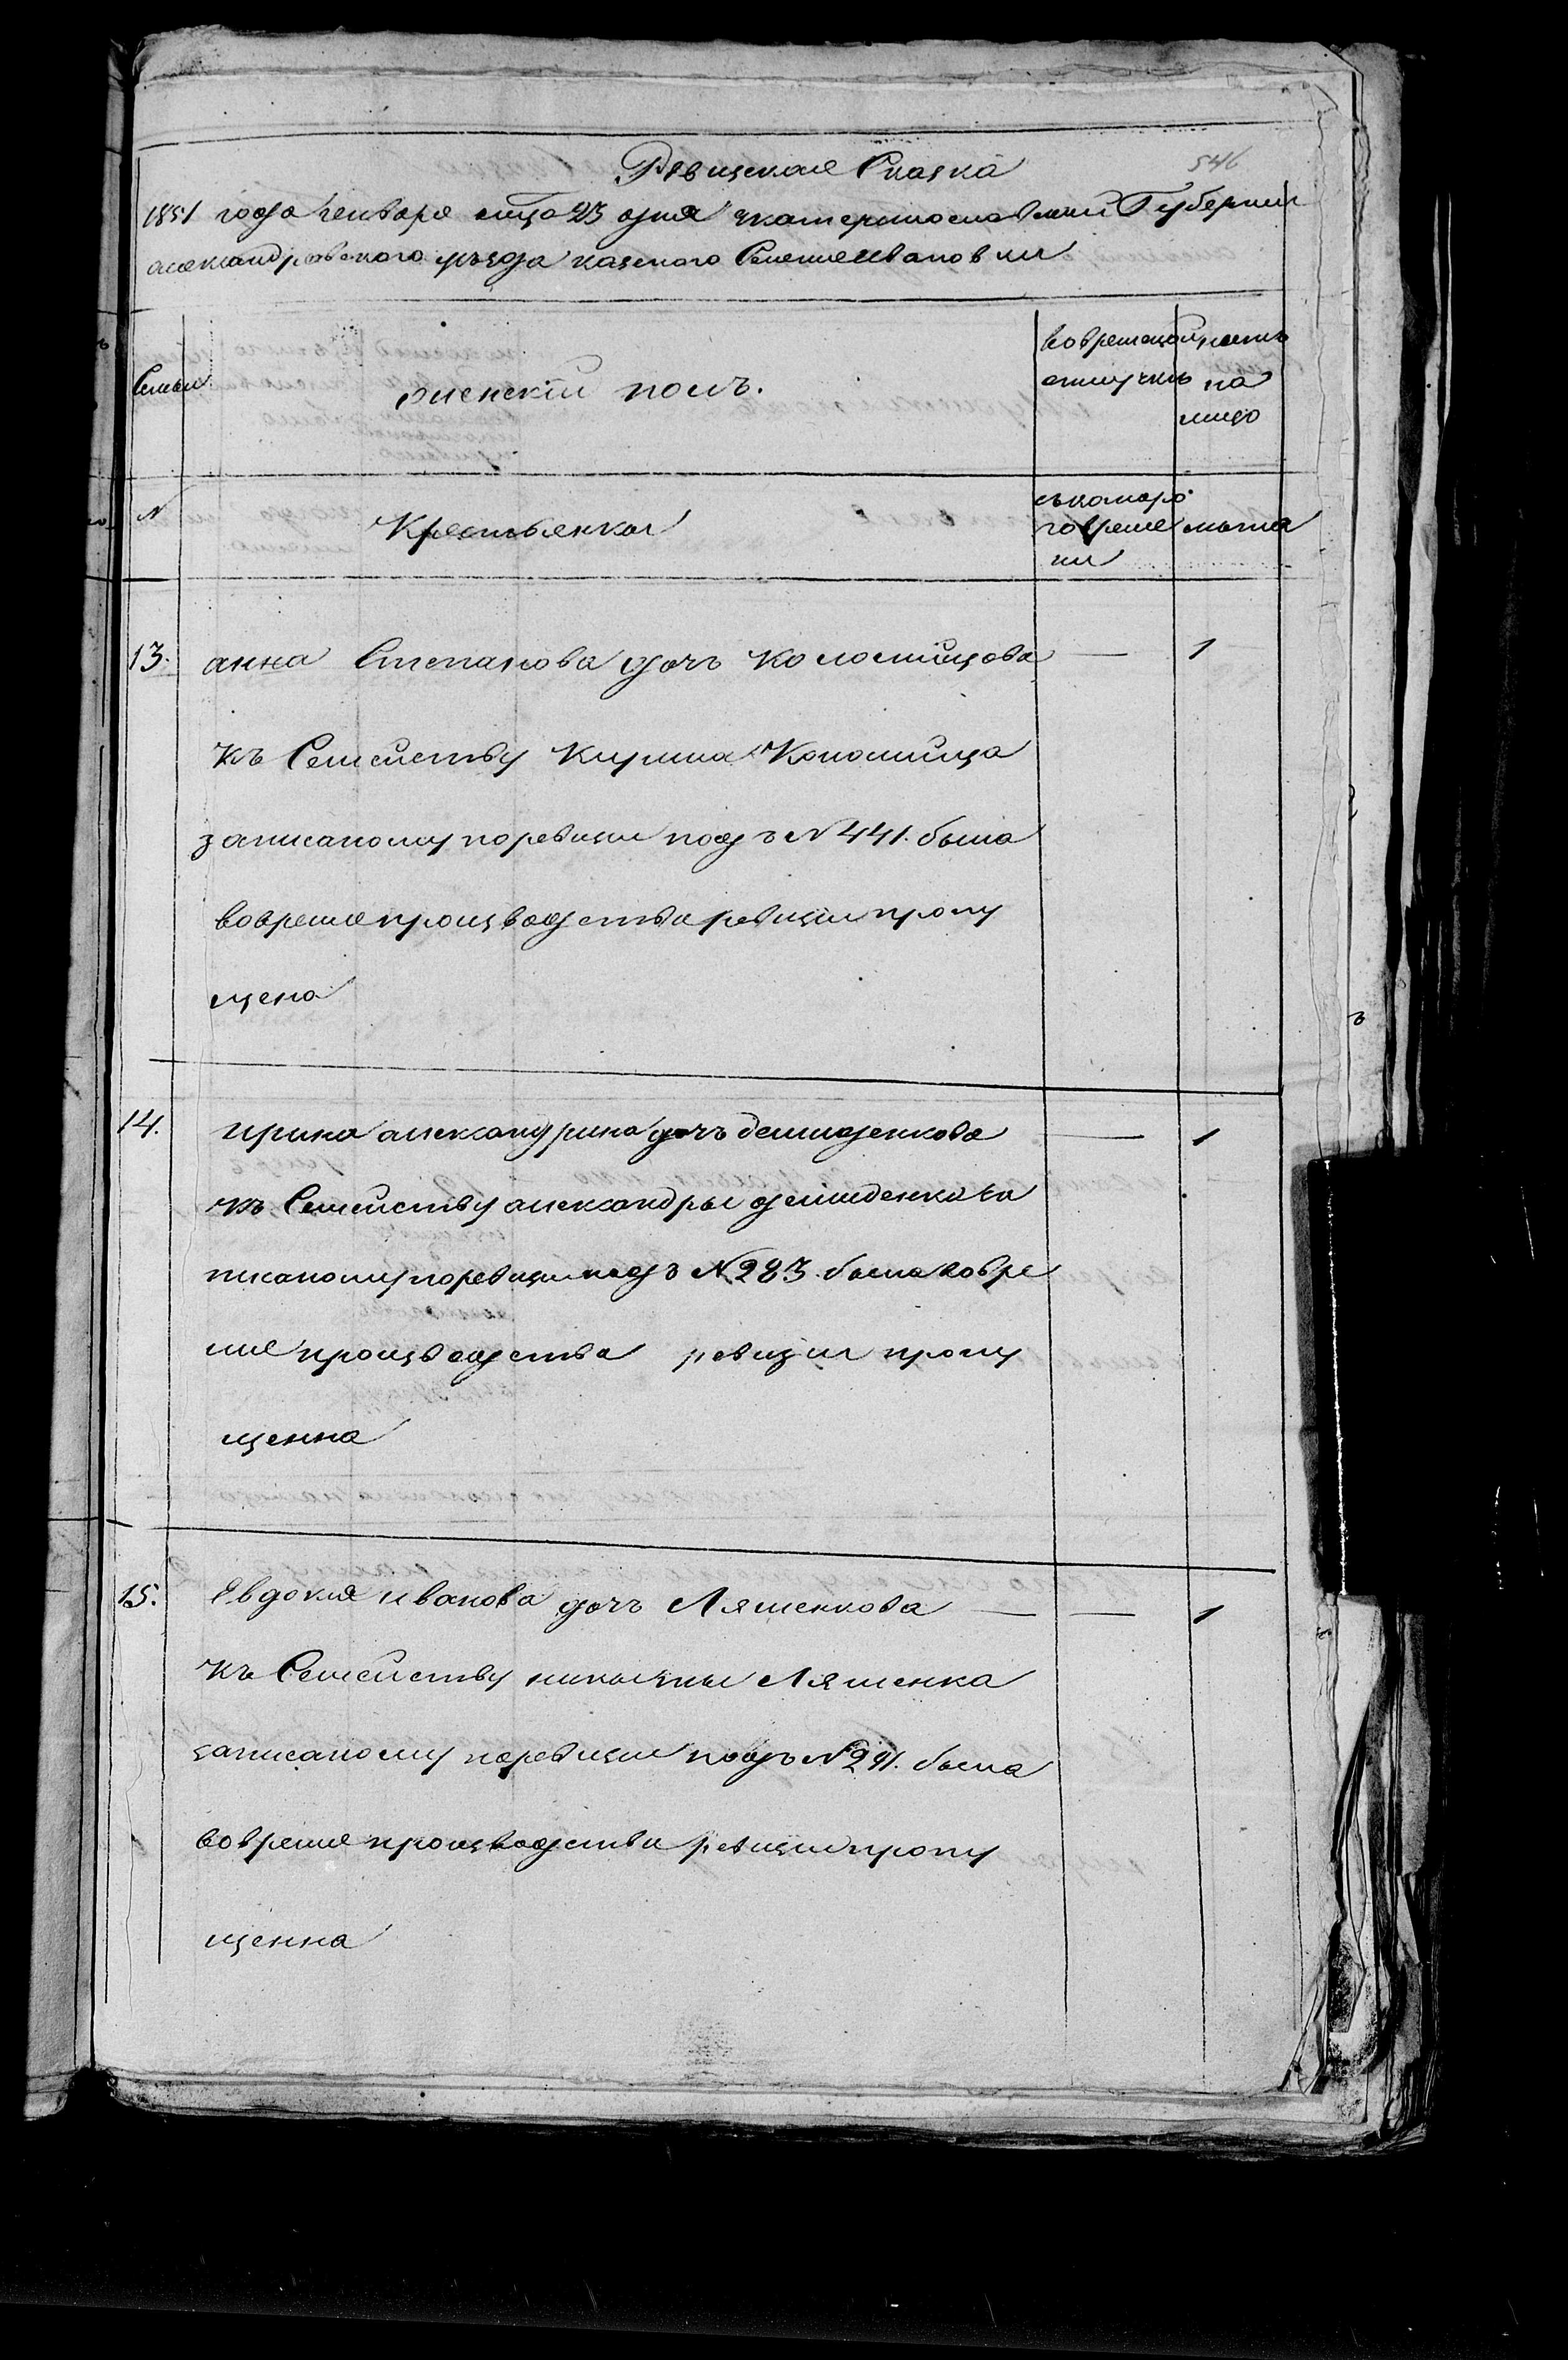 546
Ревизская Сказка
1851 года генваря мца 23 дня екатеринославской Губернии
александровского уезда казеного Селения Ивановки
Семьи
женскiй полъ.
Вовременой отлучкѣ
на лицо
N
Крестьянка
съкаторо говреме ни
лѣта
13. анна Степанова дочъ Коломийцова — 1
къ Семейству Кирила Коломийца
записаному поревизии подъ N 441. была
вовремя производства ревизии пропу
щена
14. ирина александрина дочъ демиденкова — 1
къ Семейству александры демиденка за
писаному поревизии подъ N 283. была вовре
мя производства ревизии пропу
щенна
15. Евдокия иванова дочъ Ляшенкова — — 1
къ Семейству Ляшенка
записаному поревизии подъ N 291. была
вовремя производства ревизии пропу
щенна